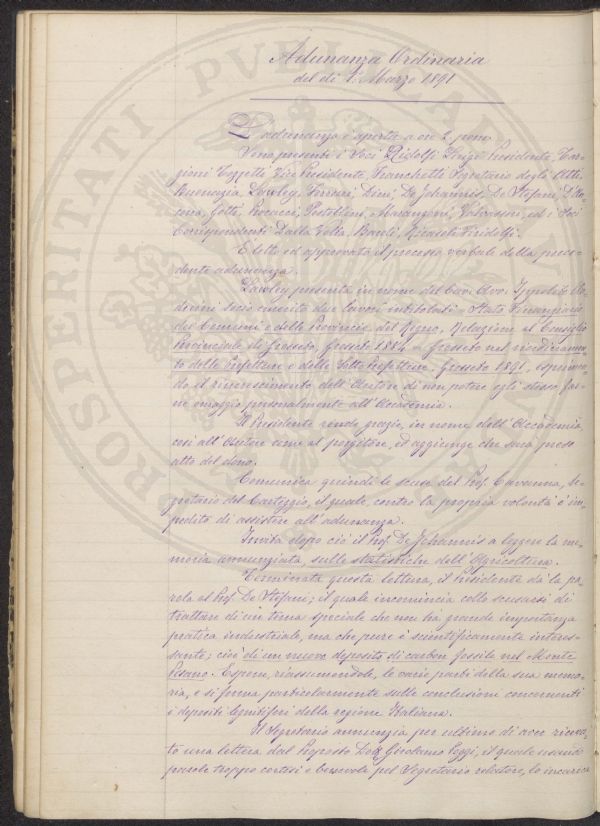 Adunanza Ordinaria
del dì 1° Marzo 1891
L'adunanza è aperta a ore 2 pom.
Sono presenti i Soci Ridolfi Luigi Presidente, Tar-
gioni Tozzetti Vice Presidente, Franchetti Segretario degli Atti,
Lawley, Ferrari, Dini, De Johannis, De Stefani, D'An-
cona, Gotti, Procacci, Pestellini, Marangoni, Valvassori, ed i Soci
Corrispondenti Dalla Volta, Banti, Ricasoli Firidolfi.
È letto ed approvato il processo verbale della prece-
dente adunanza.
Lawley presenta in nome del Cav. Avv. Ippolito
socio emerito due lavori intitolati - Stato Finanziario
dei Comuni e delle Provincie del Regno, Relazione al Consiglio
Provinciale di Grosseto, Grosseto 1884 - Grosseto nel riordinamen-
to delle Prefetture e delle Sotto Prefetture. Grosseto 1891, esprimen-
do il rincrescimento dell'Autore di non potere egli stesso far-
ne omaggio personalmente all'Accademia.
Il Presidente rende grazie, in nome dell'Accademia,
così all'Autore come al porgitore, ed aggiunge che sarà preso
atto del dono.
Comunica quindi le scuse del Prof. Cavanna, Se-
gretario del Carteggio, il quale, contro la propria volontà è im-
pedito di assistere all'adunanza.
Invita dopo ciò il Prof. De Johannis a leggere la me-
moria annunziata, sulle statistiche dell'Agricoltura.
Terminata questa lettura, il Presidente dà la pa-
rola al Prof. De Stefani; il quale incomincia collo scusarsi di
trattare di un tema speciale che non ha grande importanza
pratica industriale, ma che pure è scientificamente interes-
sante; cioè di un nuovo deposito di carbon fossile nel Monte
Pisano. Espone, riassumendole, le varie parti della sua memo-
ria, e si ferma particolarmente sulle conclusioni concernenti
i depositi lignitiferi della regione Italiana.
Il Segretario annunzia per ultimo di aver ricevu-
to una lettera dal Proposto Dott. Girolamo Poggi, il quale usando
parole troppo cortesi e benevole pel Segretario relatore, lo incarica
PROSPERITATI PVBLICAE